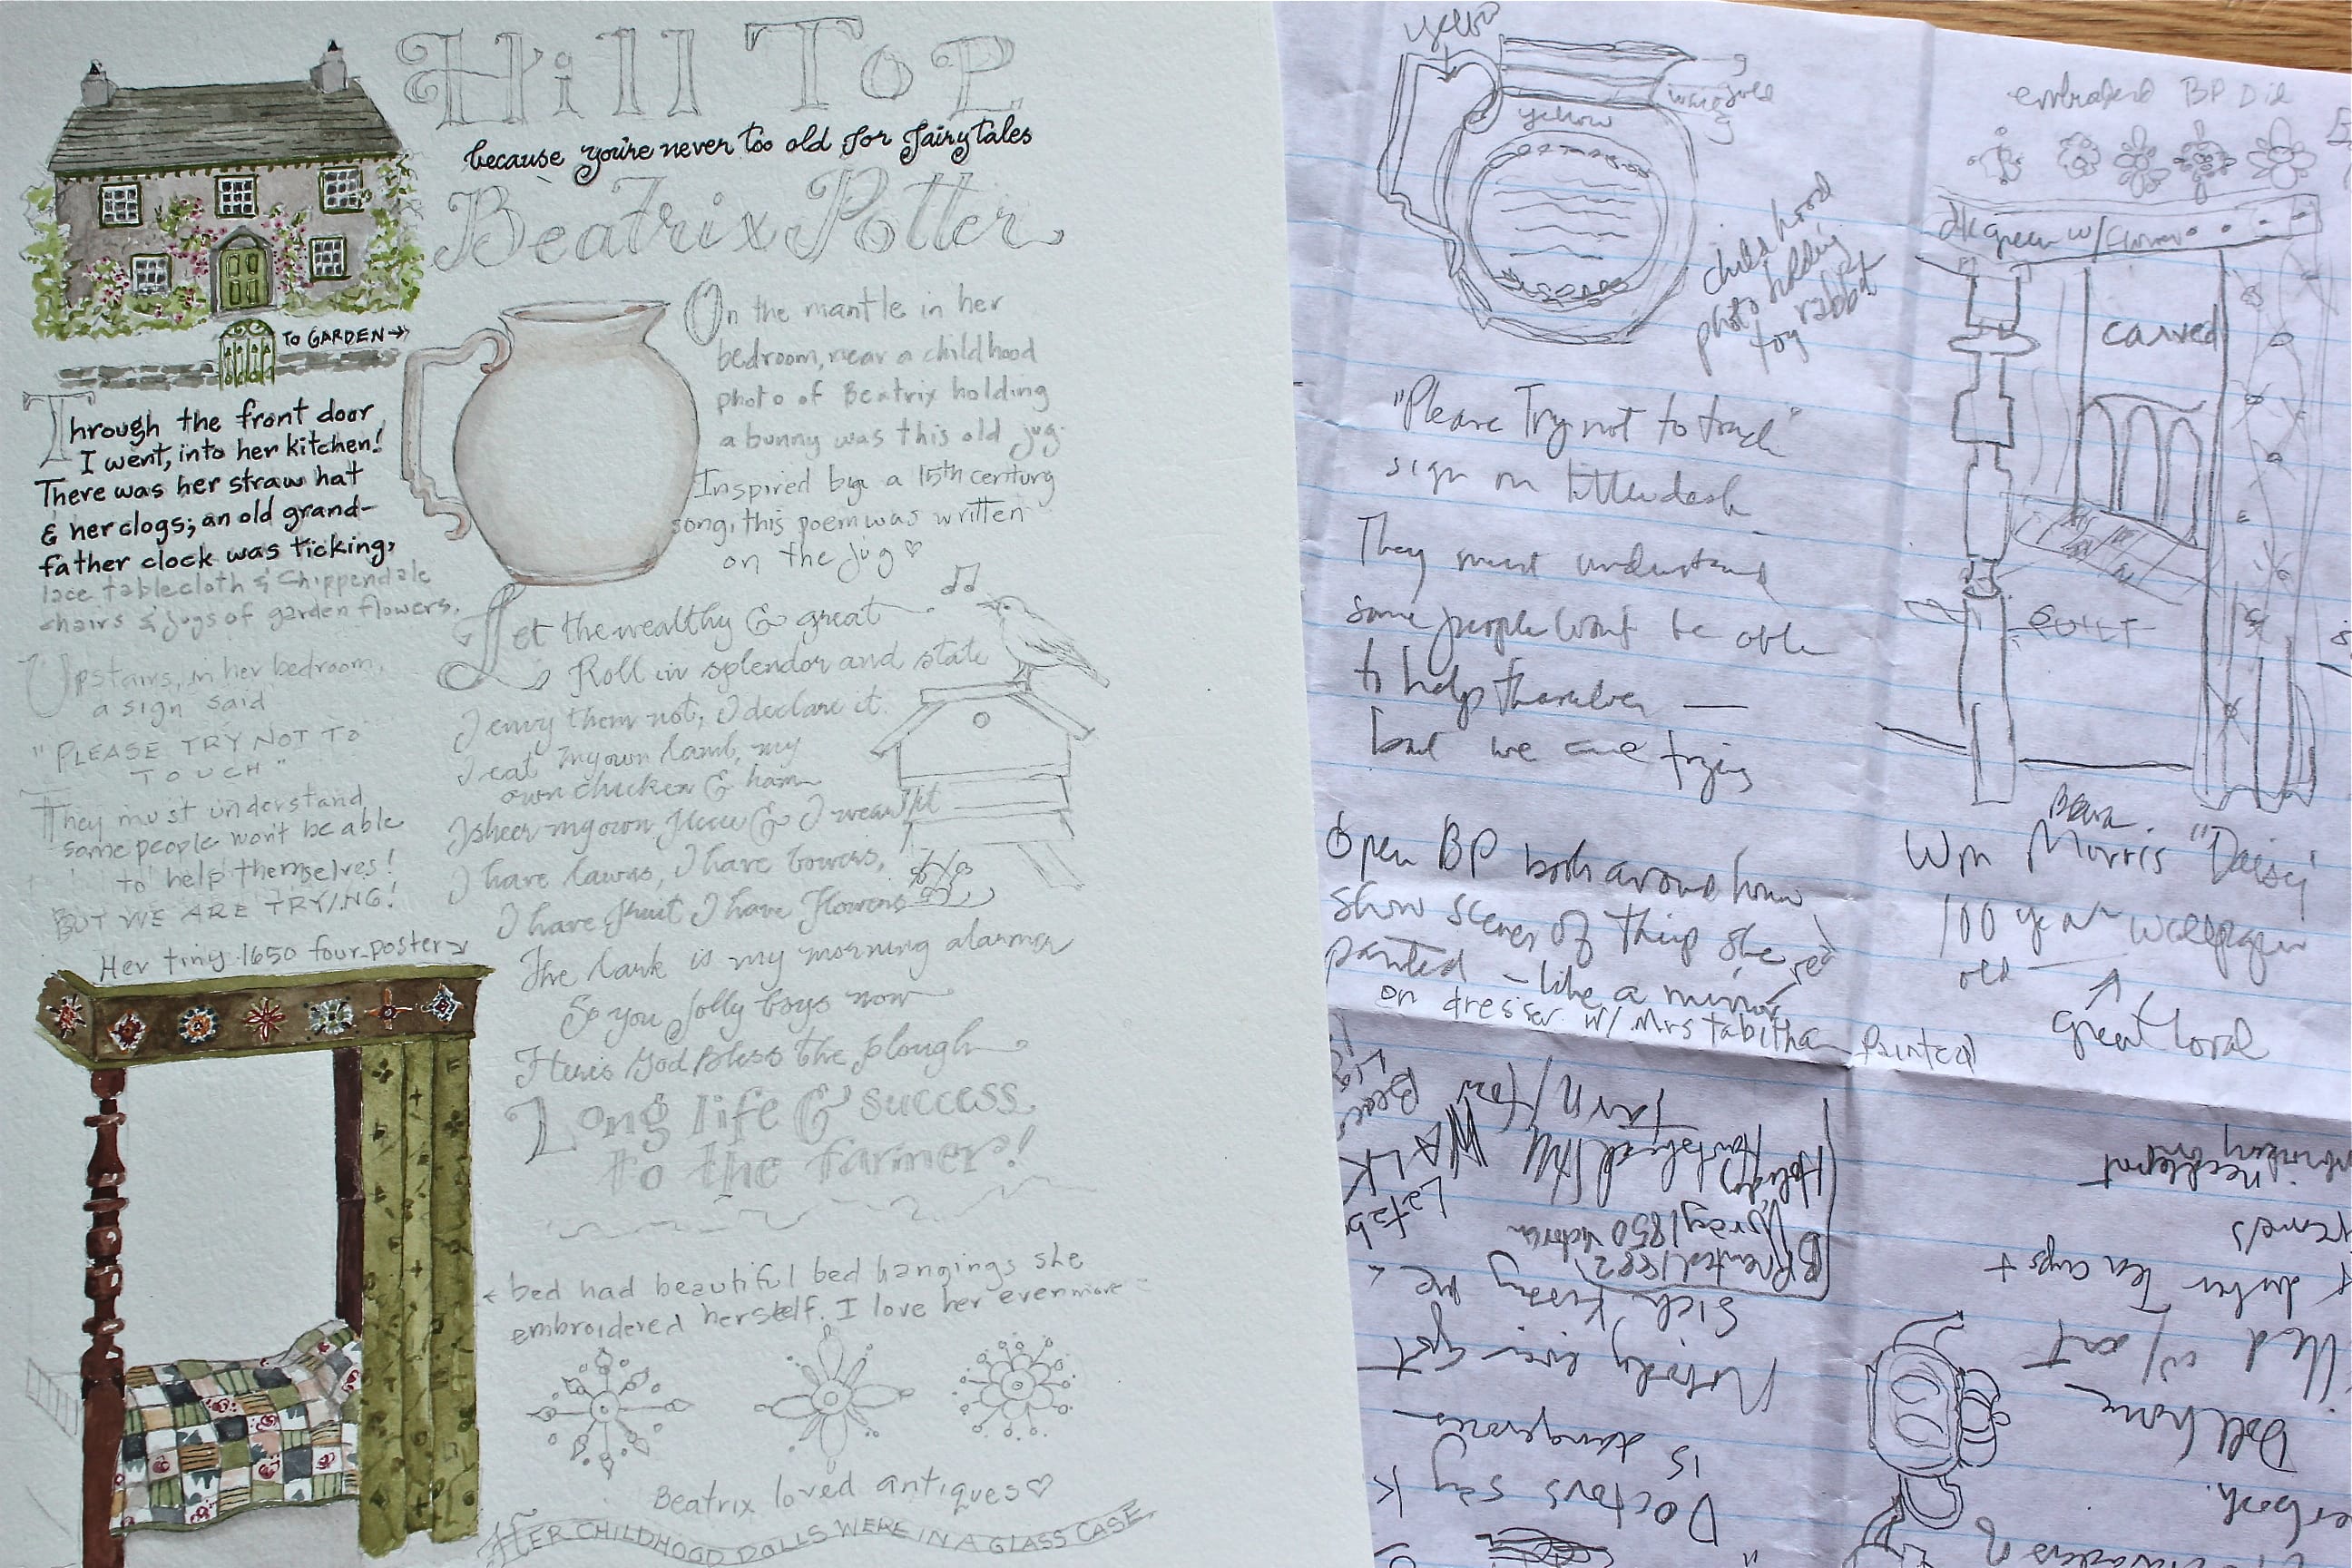 Hill Top
because you're never too old for fairytales
Beatrix Potter
TO GARDEN →
Through the front door
I went, into her kitchen!
There was her straw hat
& her clogs; an old grand-
father clock was ticking,
lace tablecloth & Chippendale
chairs & jugs of garden flowers.
Upstairs, in her bedroom,
a sign said
"PLEASE TRY NOT TO
TOUCH"
They must understand
some people won't be able
to help themselves!
BUT WE ARE TRYING!
Her tiny 1650 four-poster
On the mantle in her
bedroom, near a childhood
photo of Beatrix holding
a bunny was this old jug.
Inspired by a 15th century
song, this poem was written
on the jug ♡
Let the wealthy & great
Roll in splendor and state
I envy them not, I declare it.
I eat my own lamb, my
own chicken & ham
I sheer my own fleece & I wear it
I have lawns, I have bowers,
I have fruit I have flowers
The lark is my morning alarmer
So you jolly boys now
Here's God Bless the plough
Long life & success
to the farmer!
bed had beautiful bed hangings she
embroidered herself. I love her evermore
Beatrix loved antiques ♡
HER CHILDHOOD DOLLS WERE IN A GLASS CASE.
yellow
childhood
photo holding
toy rabbit
"Please Try not to touch"
sign on little desk
They must understand
some people wont be able
to help themselves —
but we are trying
Open BP books around house
show scenes of things she
painted - like a mirror
on dresser w/ Mrs tabitha
painted
red
BP Did
dk green w/ flowers
carved
QUILT
Wm Morris "Daisy"
100 year wallpaper
old
Doctors say K
is dangerous
Nobody ever got
sick kissing me
BP rented 1882
Wray 1850 Victorian
Holiday
WALK
needlepoint
Doll house